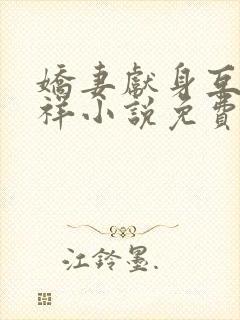 嬌妻獻身互
祥小說免費
江鈴墨.